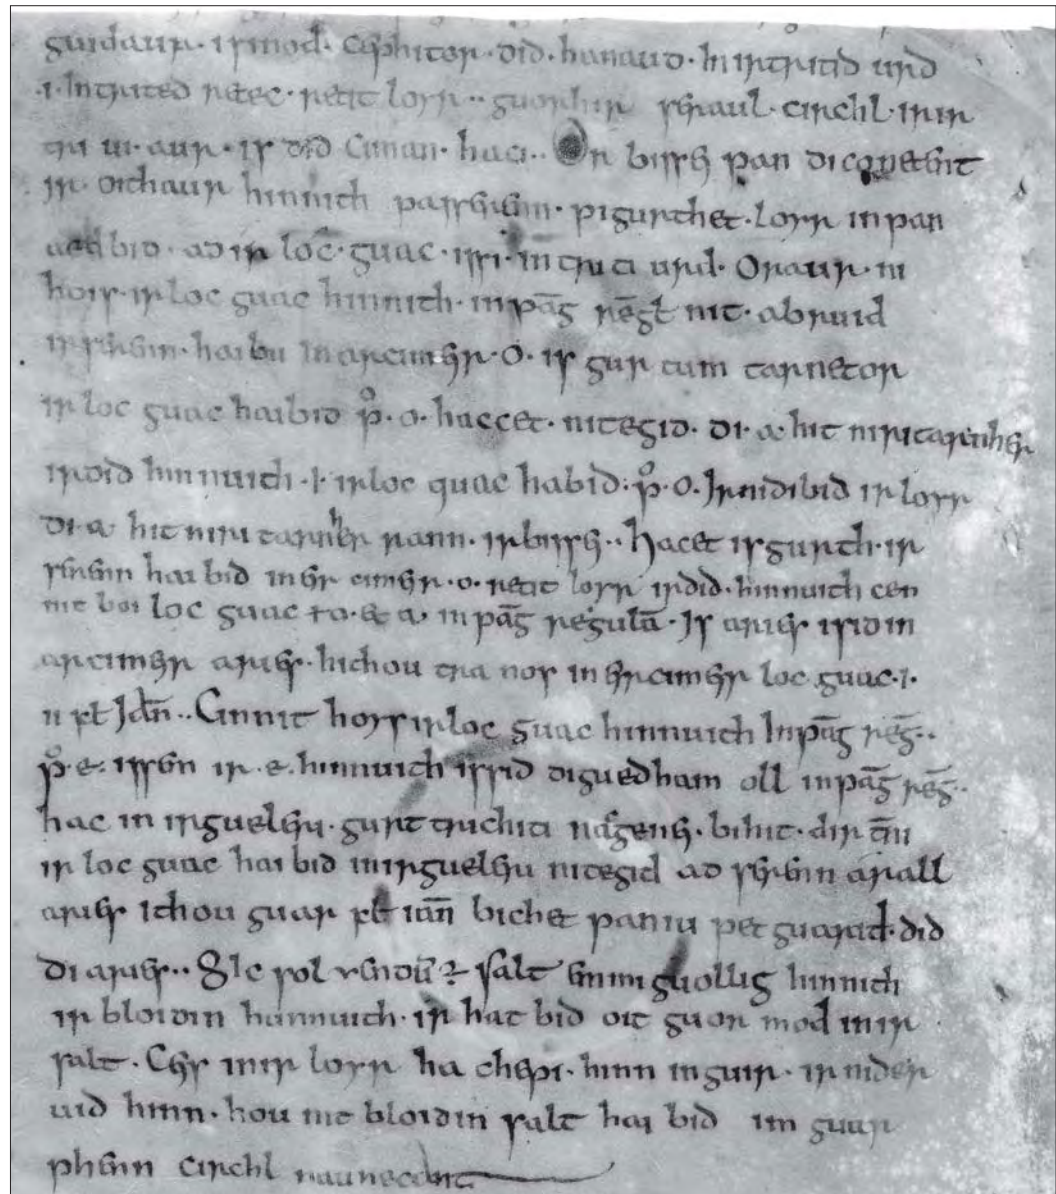 guidaur · is mod · cephitor · did · hanaud · in ir tritid urd
·i· in trited retec · retit loyr ·· guorhir seraul · circhl · ir ir
tri ui · aur · is did ciman · haci ·· Or bissei pan dicoueit
ir · oithaur hinnith passerenn · pigurthet · loyr in pan
aed bid · ad ir loc · guac · issi · in triti urd · Or aur · ni
hois · ir loc guac hinnith · in pāg rēgł nit · abruid
ir serenn · hai bu in arcimeir · o · is gur tum tarnetor
ir loc guac hai bid p̊ · o · hac cet · nitegid · di · a · hit niri tarnher
ir did hinnuith · ł · ir loc guac habid · p̊ · o · Ir ni dibid ir loyr
di · a hit niri tarnher rann · ir bissei ·· Hacet is gurth · ir
serenn hai bid in eir cimeir · o · retit loyr ir did · hinnuith cen
nit boi loc guac · o · et a · in pāg regulā · Is aries isid in
arcimeir aries · hithou tra nos in eircimeir loc guac · i ·
in kł Iāñ ·· Cinnit hoys ir loc guac hinnuith in pāg rēg ··
p̊ · e · issem ir · e · hinnuith issid diguedham oll in pāg rēg ··
hac in ir guelehi · gurt trichiti nacgenei · bihit · dir
ir loc guac hai bid in ir guelehi nitegid ad serenn arall
aries ithou guar kł iāñ bichet paniu pet guarid · did
di aries ·· salt emmi guollig hinnith
ir bloidin hunnuith · ir hat bid oit guor mod in ir
salt · Ceis inir loyr ha chepi · hinn in guir · ir nider
uid hinn · hou nit bloidin salt hai bid im guar
phenn circhl naunecant